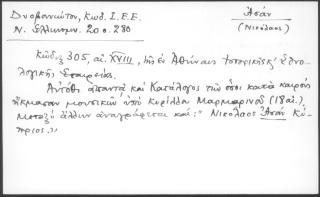 Δυοβουνιώτου, Κώδ. Ι.Ε.Ε.
Ν. Ελληνομ. 20 σ. 280
Ἀσάν
(Νικόλαος)
Κώδιξ 305, αἰ. XVIII, τῆς ἐν Ἀθήναις Ἱστορικῆς κ' Ἐθνο-
λογικῆς Ἑταιρείας.
Αὐτόθι ἀπαντᾷ καὶ Κατάλογος τῶν ὅσοι κατὰ καιροὺς
ἤκμασαν μουσικῶν ὑπὸ Κυρίλλου Μαρμαρινοῦ (18 αἰ.).
Μεταξὺ ἄλλων ἀναγράφεται καί: "Νικόλαος Ἀσάν Κύ-
πριος."